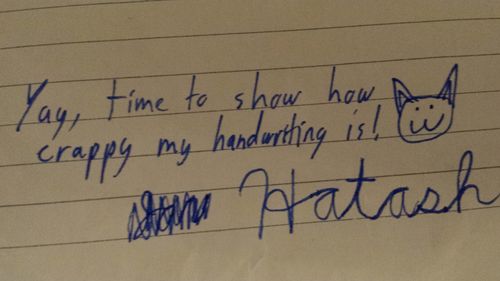 Yay, time to show how
crappy my handwriting is!
Hatash